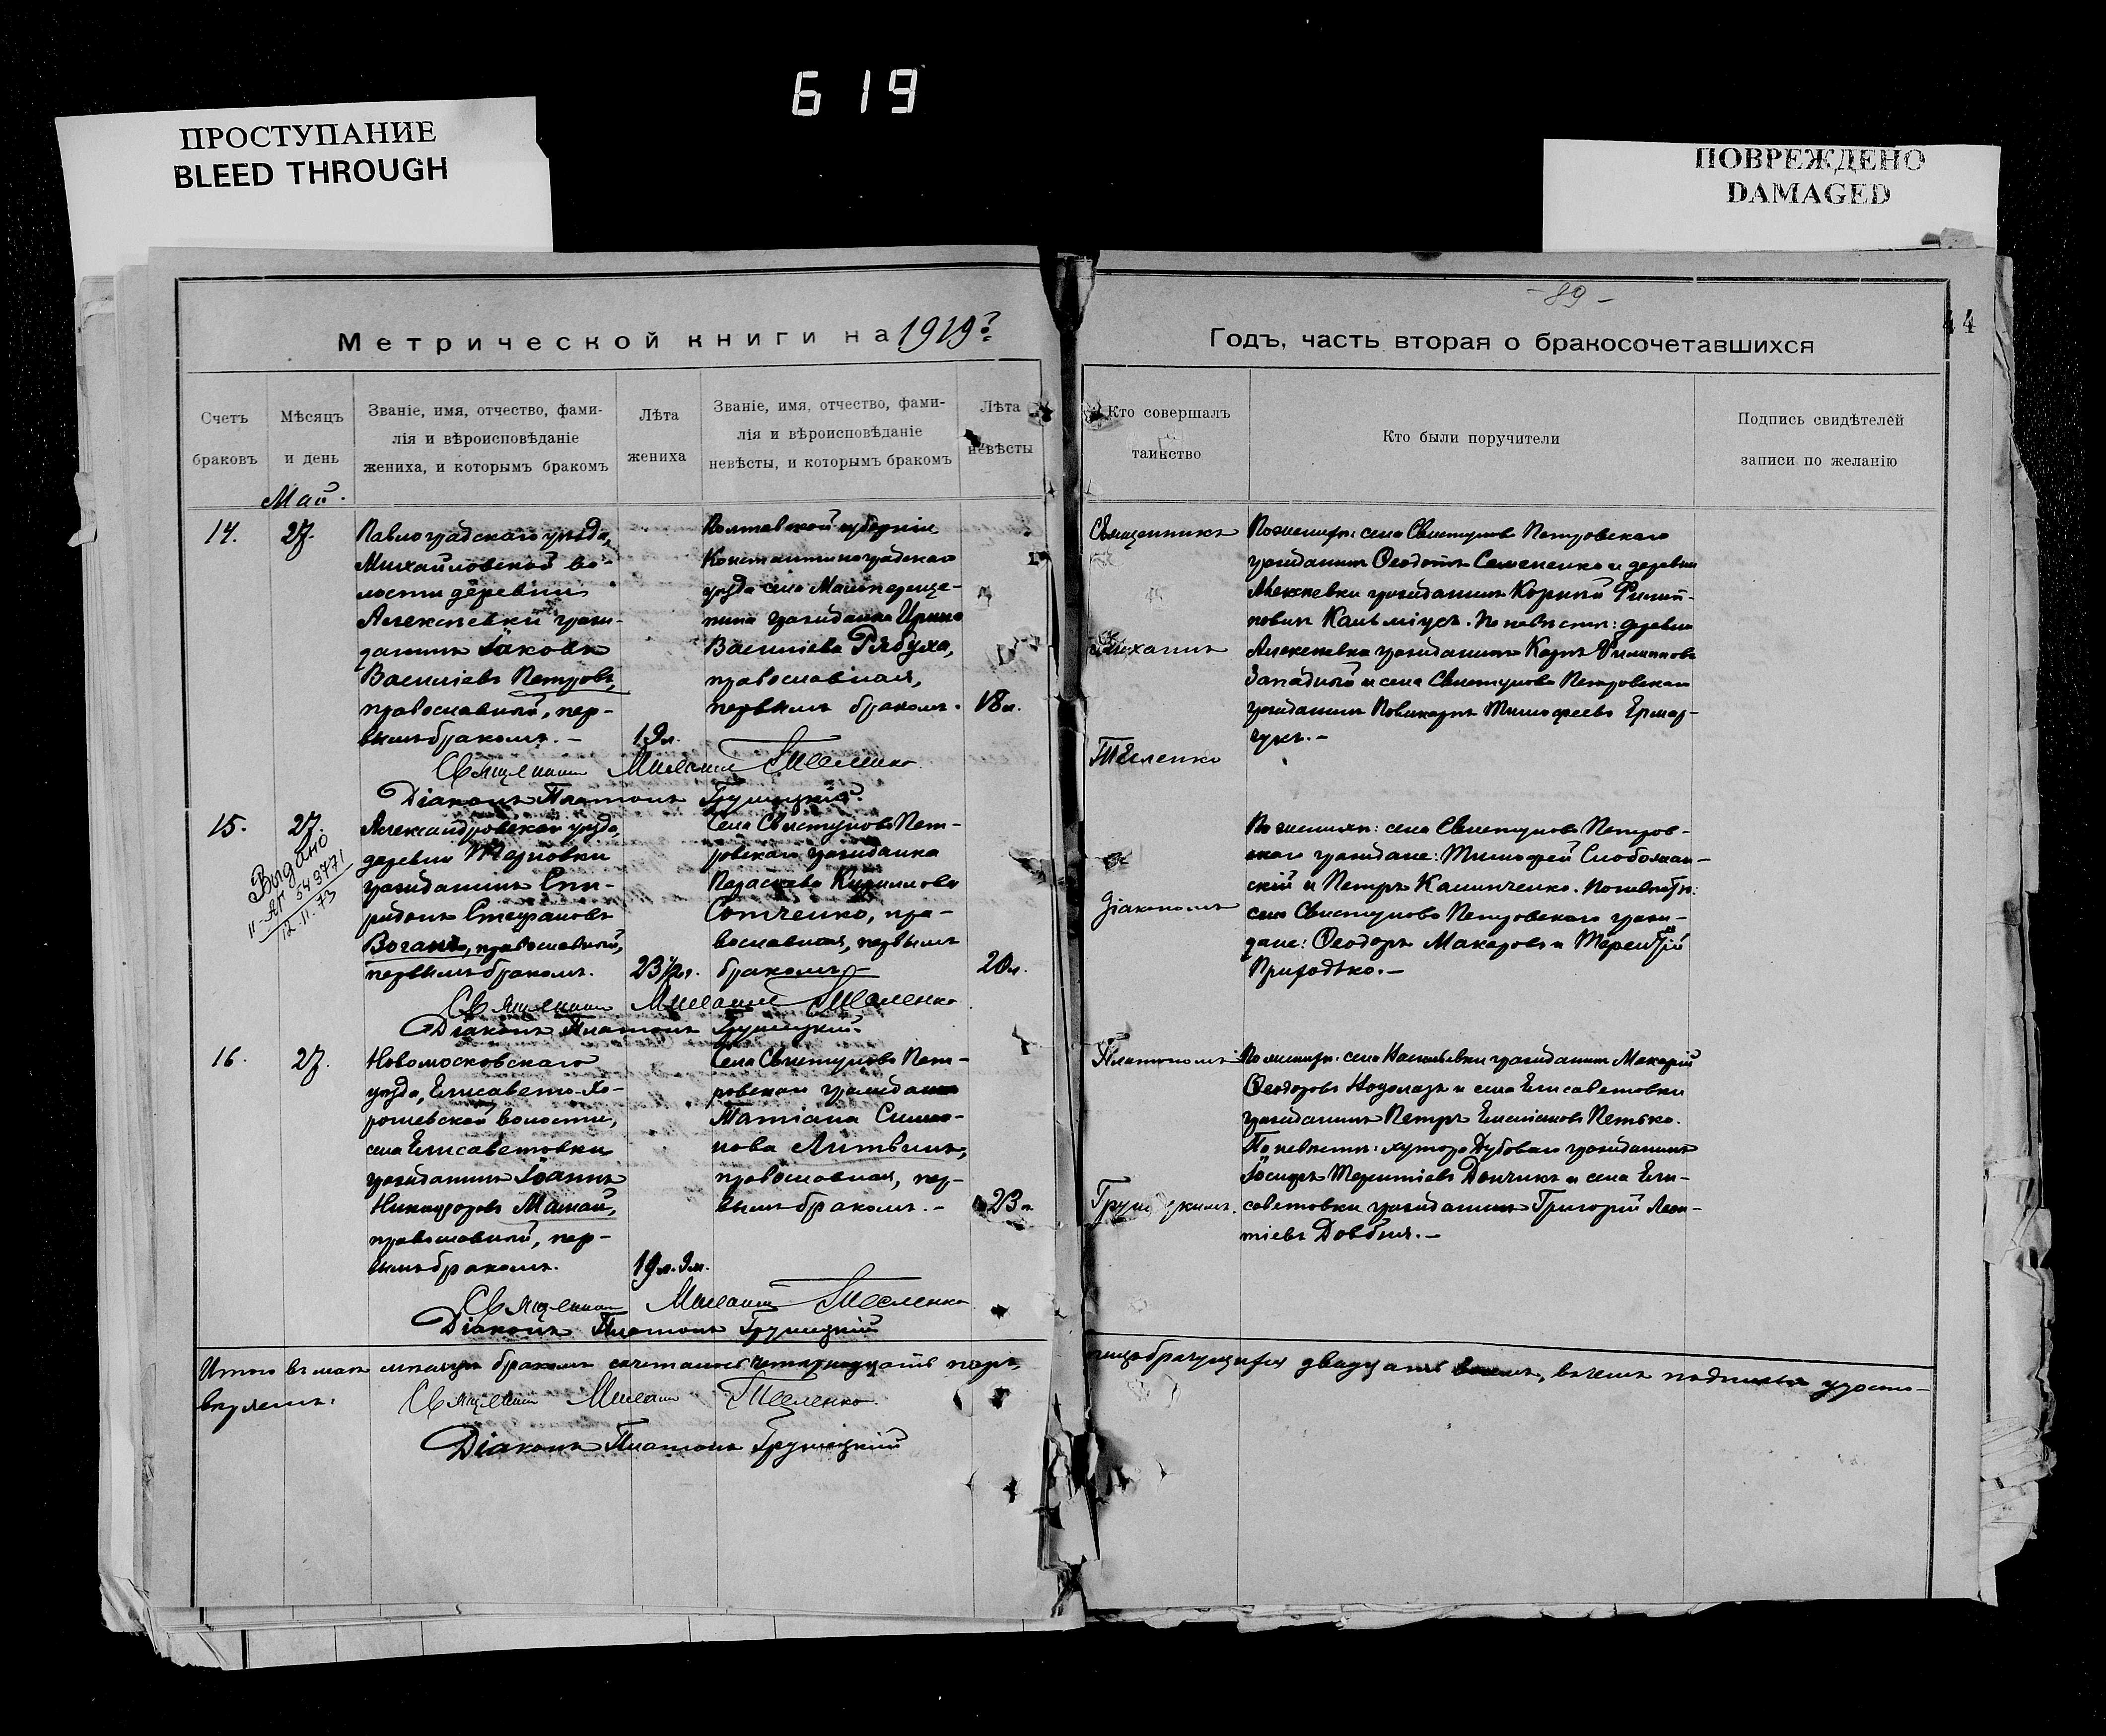 619
ПРОСТУПАНИЕ
BLEED THROUGH
ПОВРЕЖДЕНО
DAMAGED
- 89 -
44
Метрической книги на 1919 г.
Годъ, часть вторая о бракосочетавшихся
Счетъ браковъ
Мѣсяцъ и день
Званіе, имя, отчество, фами-
лія и вѣроисповѣданіе
жениха, и которымъ бракомъ
Лѣта жениха
Званіе, имя, отчество, фами-
лія и вѣроисповѣданіе
невѣсты, и которымъ бракомъ
Лѣта невѣсты
Кто совершалъ таинство
Кто были поручители
Подпись свидѣтелей
записи по желанію
Май.
14.
27.
Павлоградскаго уѣзда,
Михайловской во-
лости деревни
Алексѣевки граж-
данинъ Іаковъ
Василіевъ Петровъ,
православный, пер-
вымъ бракомъ. -
19 л.
Полтавской губерніи
Константиноградскаго
уѣзда села Малоперещe-
пина гражданка Ирина
Василіева Рябуха,
православная,
первымъ бракомъ.
18 л.
Священникъ
Михаилъ
Тесленко
По женихѣ: села Свистунова Петровскаго
гражданинъ Ѳеодотъ Семененко и деревни
Алексѣевки гражданинъ Корній Филип-
повъ Кальміусъ. По невѣстѣ: деревни
Алексѣевки гражданинъ Карпъ Филипповъ
Западный и села Свистунова Петровскаго
гражданинъ Поликарпъ Тимофеевъ Ермар-
чукъ. -
Священникъ Михаилъ Тесленко
Діаконъ Платонъ Грушецкій.
15.
27.
Выдано
II-АП 543771
12.II.73
Александровскаго уѣзда,
деревни Терновки
гражданинъ Спи-
ридонъ Стефановъ
Воганъ, православный,
первымъ бракомъ.
23½ л.
Села Свистунова Пет-
ровскаго гражданка
Параскева Кириллова
Сотченко, пра-
вославная, первымъ
бракомъ -
20 л.
діакономъ
По женихѣ: села Свистунова Петров-
скаго граждане: Тимофей Слобожан-
скій и Петръ Калинченко. По невѣстѣ:
села Свистунова Петровскаго граж-
дане: Ѳеодоръ Макаровъ и Терентій
Приходько. -
Священникъ Михаилъ Тесленко
Діаконъ Платонъ Грушецкій.
16.
27.
Новомосковскаго
уѣзда, Елисавето-Хо-
рошевской волости,
села Елисаветовки
гражданинъ Іоаннъ
Никифоровъ Мамай,
православный, пер-
вымъ бракомъ.
19 л. 9 м.
Села Свистунова Пет-
ровскаго гражданка
Татіана Симо-
нова Литвинъ,
православная, пер-
вымъ бракомъ. -
23 л.
Платономъ
Грушецкимъ.
По женихѣ: села Васильевки гражданинъ Макарій
Ѳеодоровъ и села Елисаветовки
гражданинъ Петръ Емиліановъ Петько.
По невѣстѣ: хутора Дубоваго гражданинъ
Іосифъ Терентіевъ Дончикъ и села Ели-
саветовки гражданинъ Григорій Леон-
тіевъ Довбня. -
Священникъ Михаилъ Тесленко
Діаконъ Платонъ Грушецкій
Итого въ маѣ мѣсяцѣ бракомъ сочеталось четырнадцать паръ, лицъ брачущихся двадцать восемь, въ чемъ подписью удосто-
вѣряемъ:
Священникъ Михаилъ Тесленко.
Діаконъ Платонъ Грушецкій